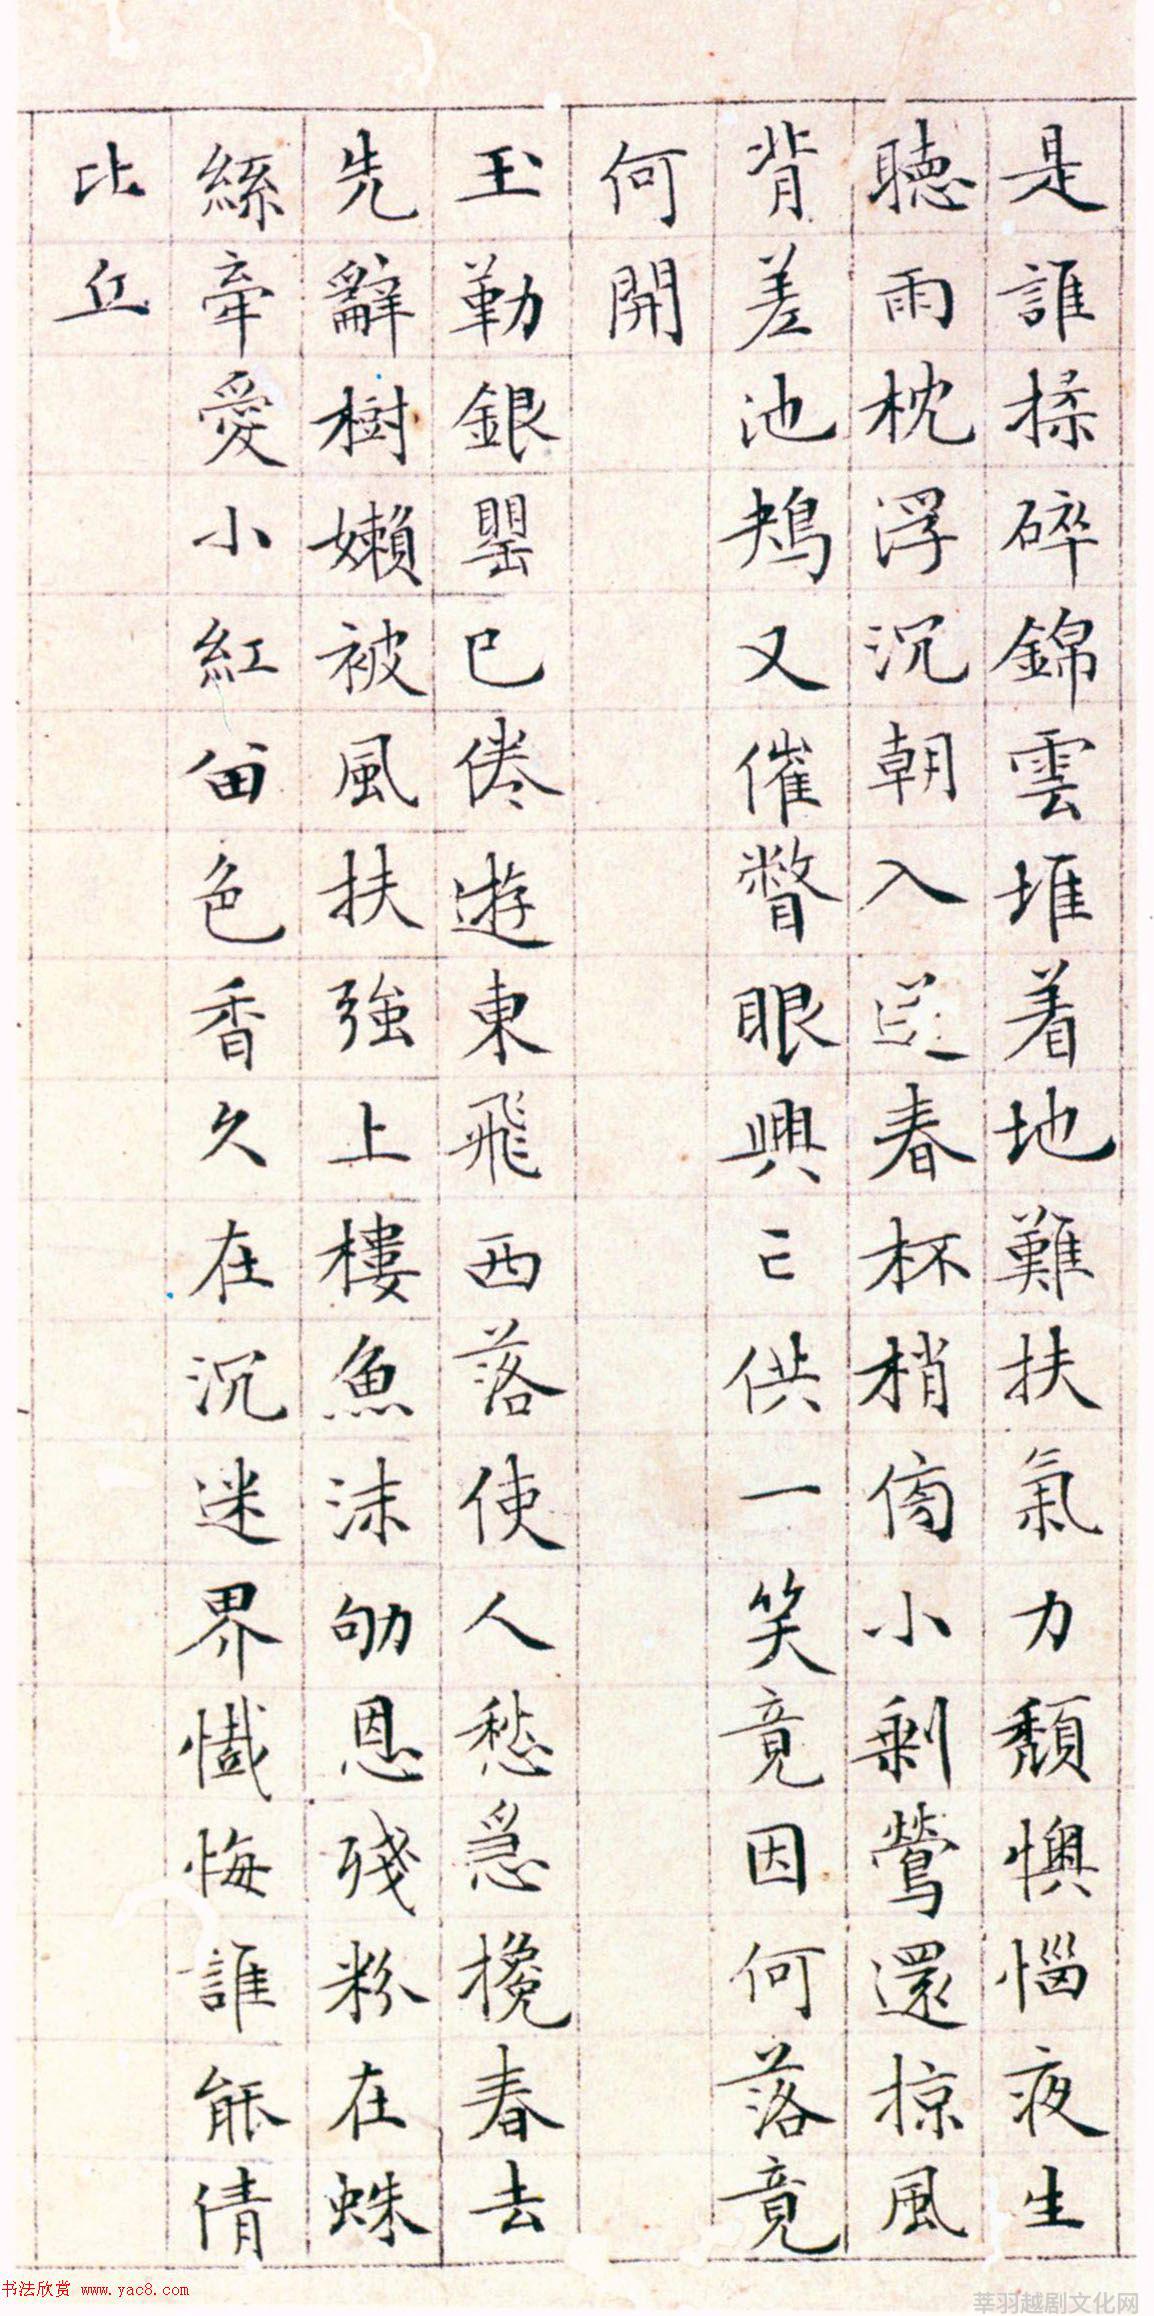 是誰揉碎錦雲堆着地難扶氣力頹懊惱夜生
聽雨枕浮沉朝入春杯梢傍小剩鶯還掠風
背差池鴂又催瞥眼興亡供一笑竟因何落竟
何開
玉勒銀罌已倦遊東飛西落使人愁急攙春去
先辭樹嬾被風扶強上樓魚沫劬恩殘粉在蛛
絲牽愛小紅留色香久在沉迷界懺悔誰能倩
比丘
书法欣赏 www.yac8.com
莘羽越剧文化网